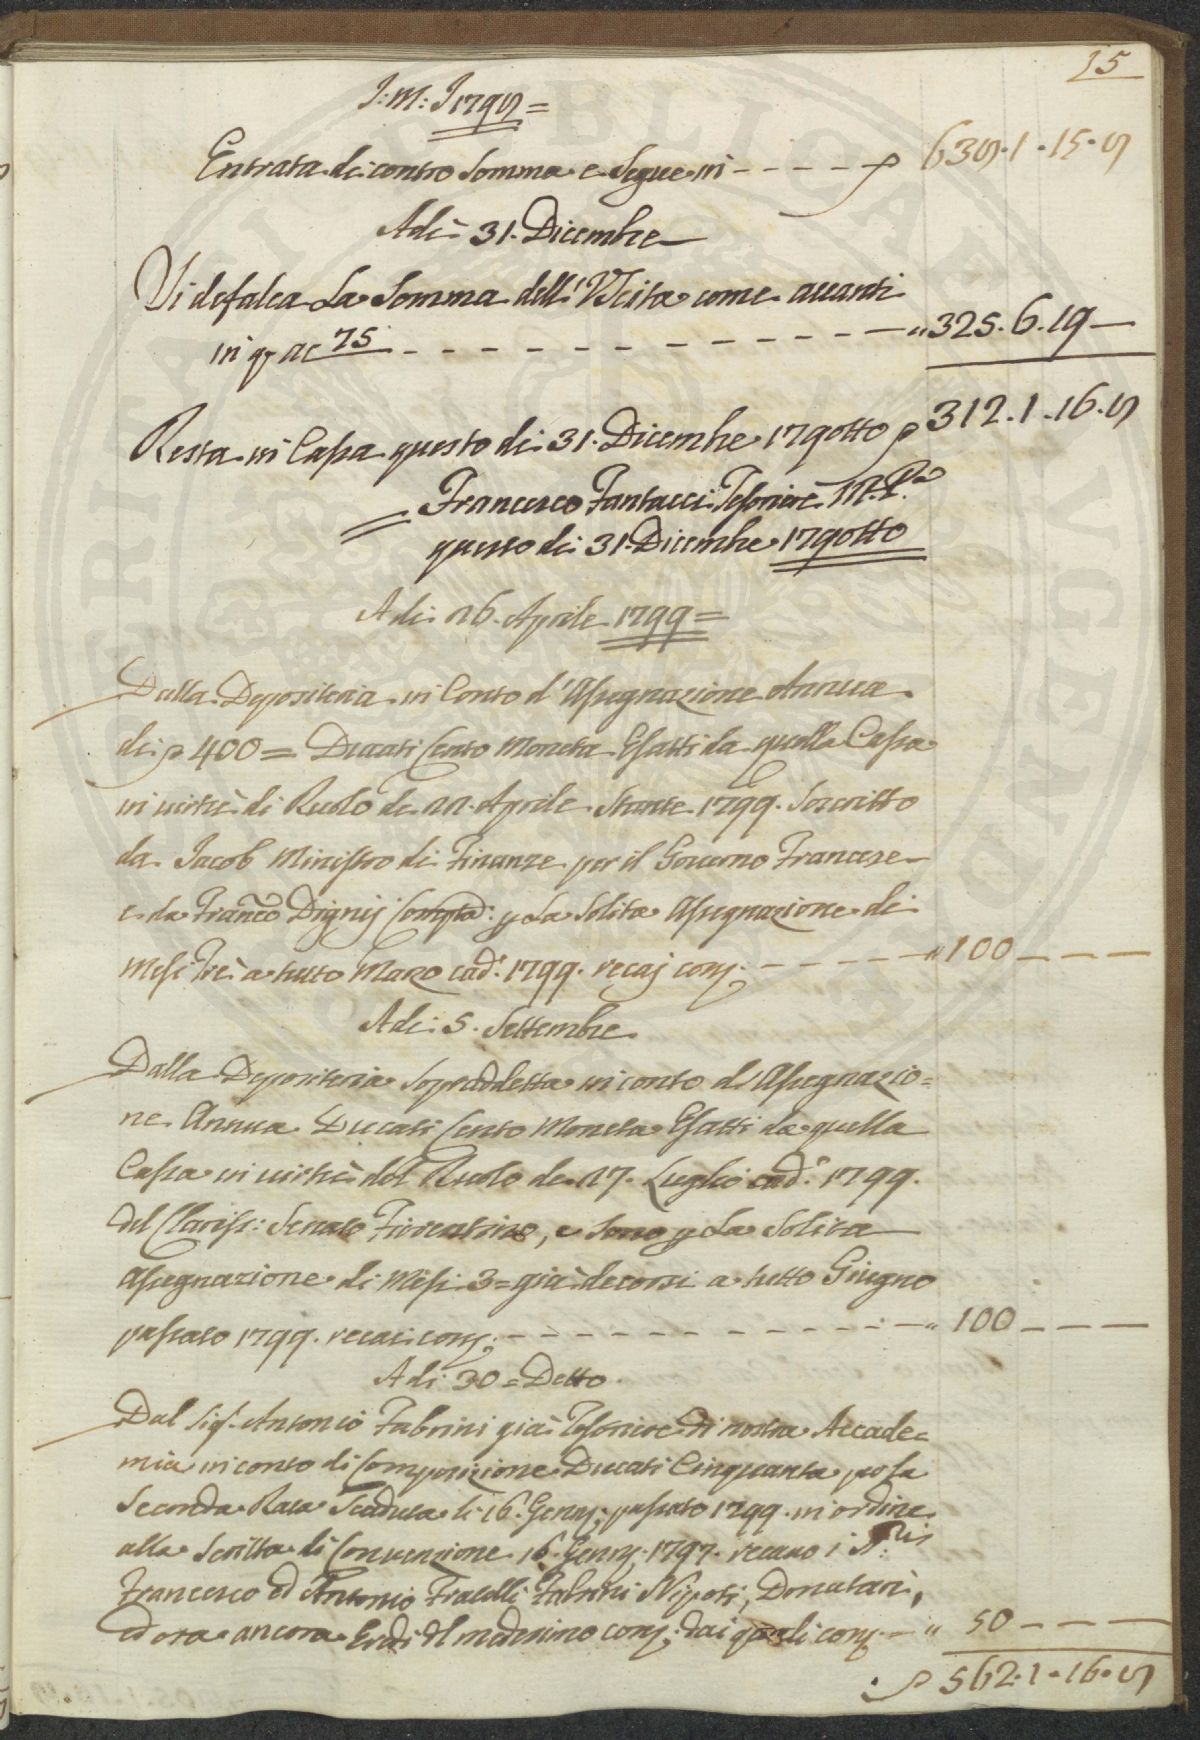 15
J: M: J 1798=
Entrata di contro Somma e Segue in - - - - - ₽ 638.1.15.8
Adi 31. Dicembre
Si defalca La Somma dell'Uscita come avanti
in q.o ac 75 - - - - - - - - - - - - " 325.6.19 —
Resta in Cassa questo di 31. Dicembre 179otto ₽ 312.1.16.8
Francesco Fantacci Tesoriere M. P.a
questo di 31. Dicembre 179otto
Adi 26. Aprile 1799=
Dalla Depositeria in Conto d'Assegnazione Annua
di ₽ 400= Ducati Cento Moneta Esatti da quella Cassa
in virtù di Ruolo de 22. Aprile Stante 1799. Soscritto
da Jacob Ministro di Finanze per il Governo Francese
e da Franco Dignij Comptà: p La Solita Assegnazione di
Mesi Tre a tutto Marzo cad.e 1799. recaj cons; - - - - - " 100 - - -
Adi 5. Settembre
Dalla Depositeria Sopraddetta in conto di Assegnazio=
ne Annua Ducati Cento Moneta Esatti da quella
Cassa in virtù del Ruolo de 27. Luglio cad.e 1799.
del Clariss: Senato Fiorentino, e Sono p La Solita
Assegnazione di Mesi 3= già decorsi a tutto Giugno
passato 1799. recai cons; - - - - - - - - - - - " 100 - - -
Adi 30= Detto
Dal Sig.r Antonio Fabrini già Tesoriere di nostra Accade=
mia in conto di Composizione Ducati Cinquanta p la
Seconda Rata Scaduta li 16. Genn; passato 1799. in ordine
alla Scritta di Convenzione 16. Genn; 1797. recano i SS.ri
Francesco ed Antonio Fratelli Fabrini Nipoti, Donatari,
ed ora ancora Eredi del medesimo cons; dai quali cons - " 50 - - -
₽ 562.1.16.8